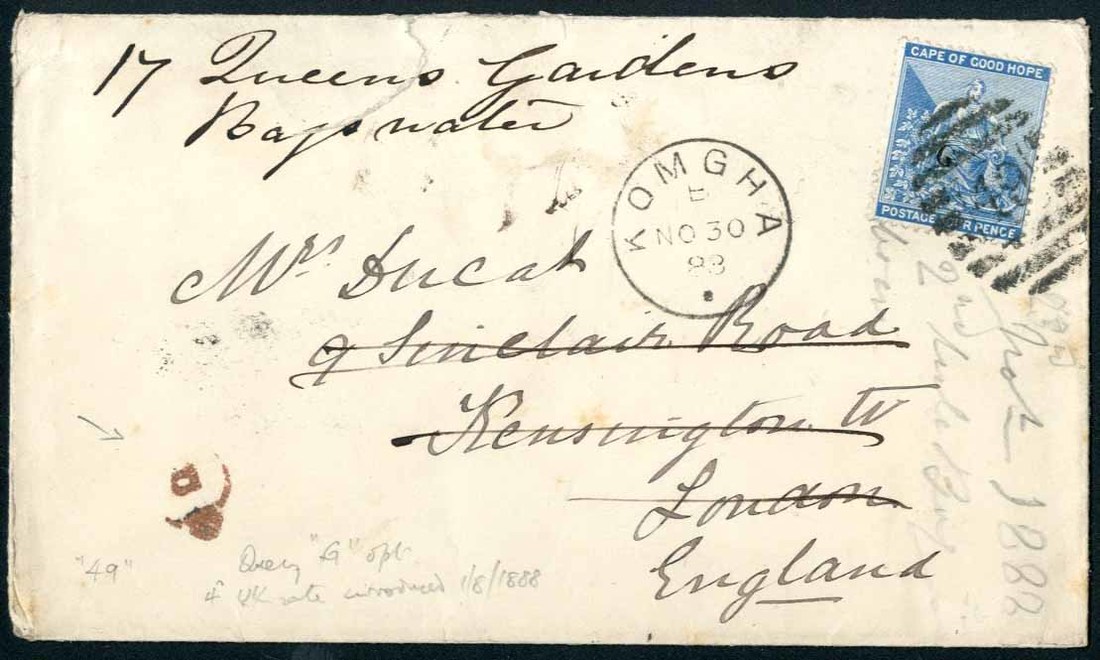 17 Queens Gardens
Bayswater
CAPE OF GOOD HOPE
POSTAGE PENCE
KOMGHA
E
NO 30
83
Mrs Ducat
9 Sinclair Road
Kensington W
London
England
"49"
Query "G" opt
UK rate introduced 1/8/1888
2nd